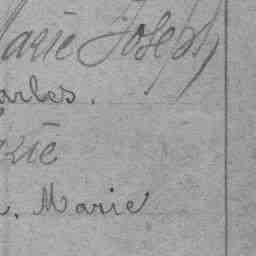 Marie Joseph
arles.
rie
, Marie